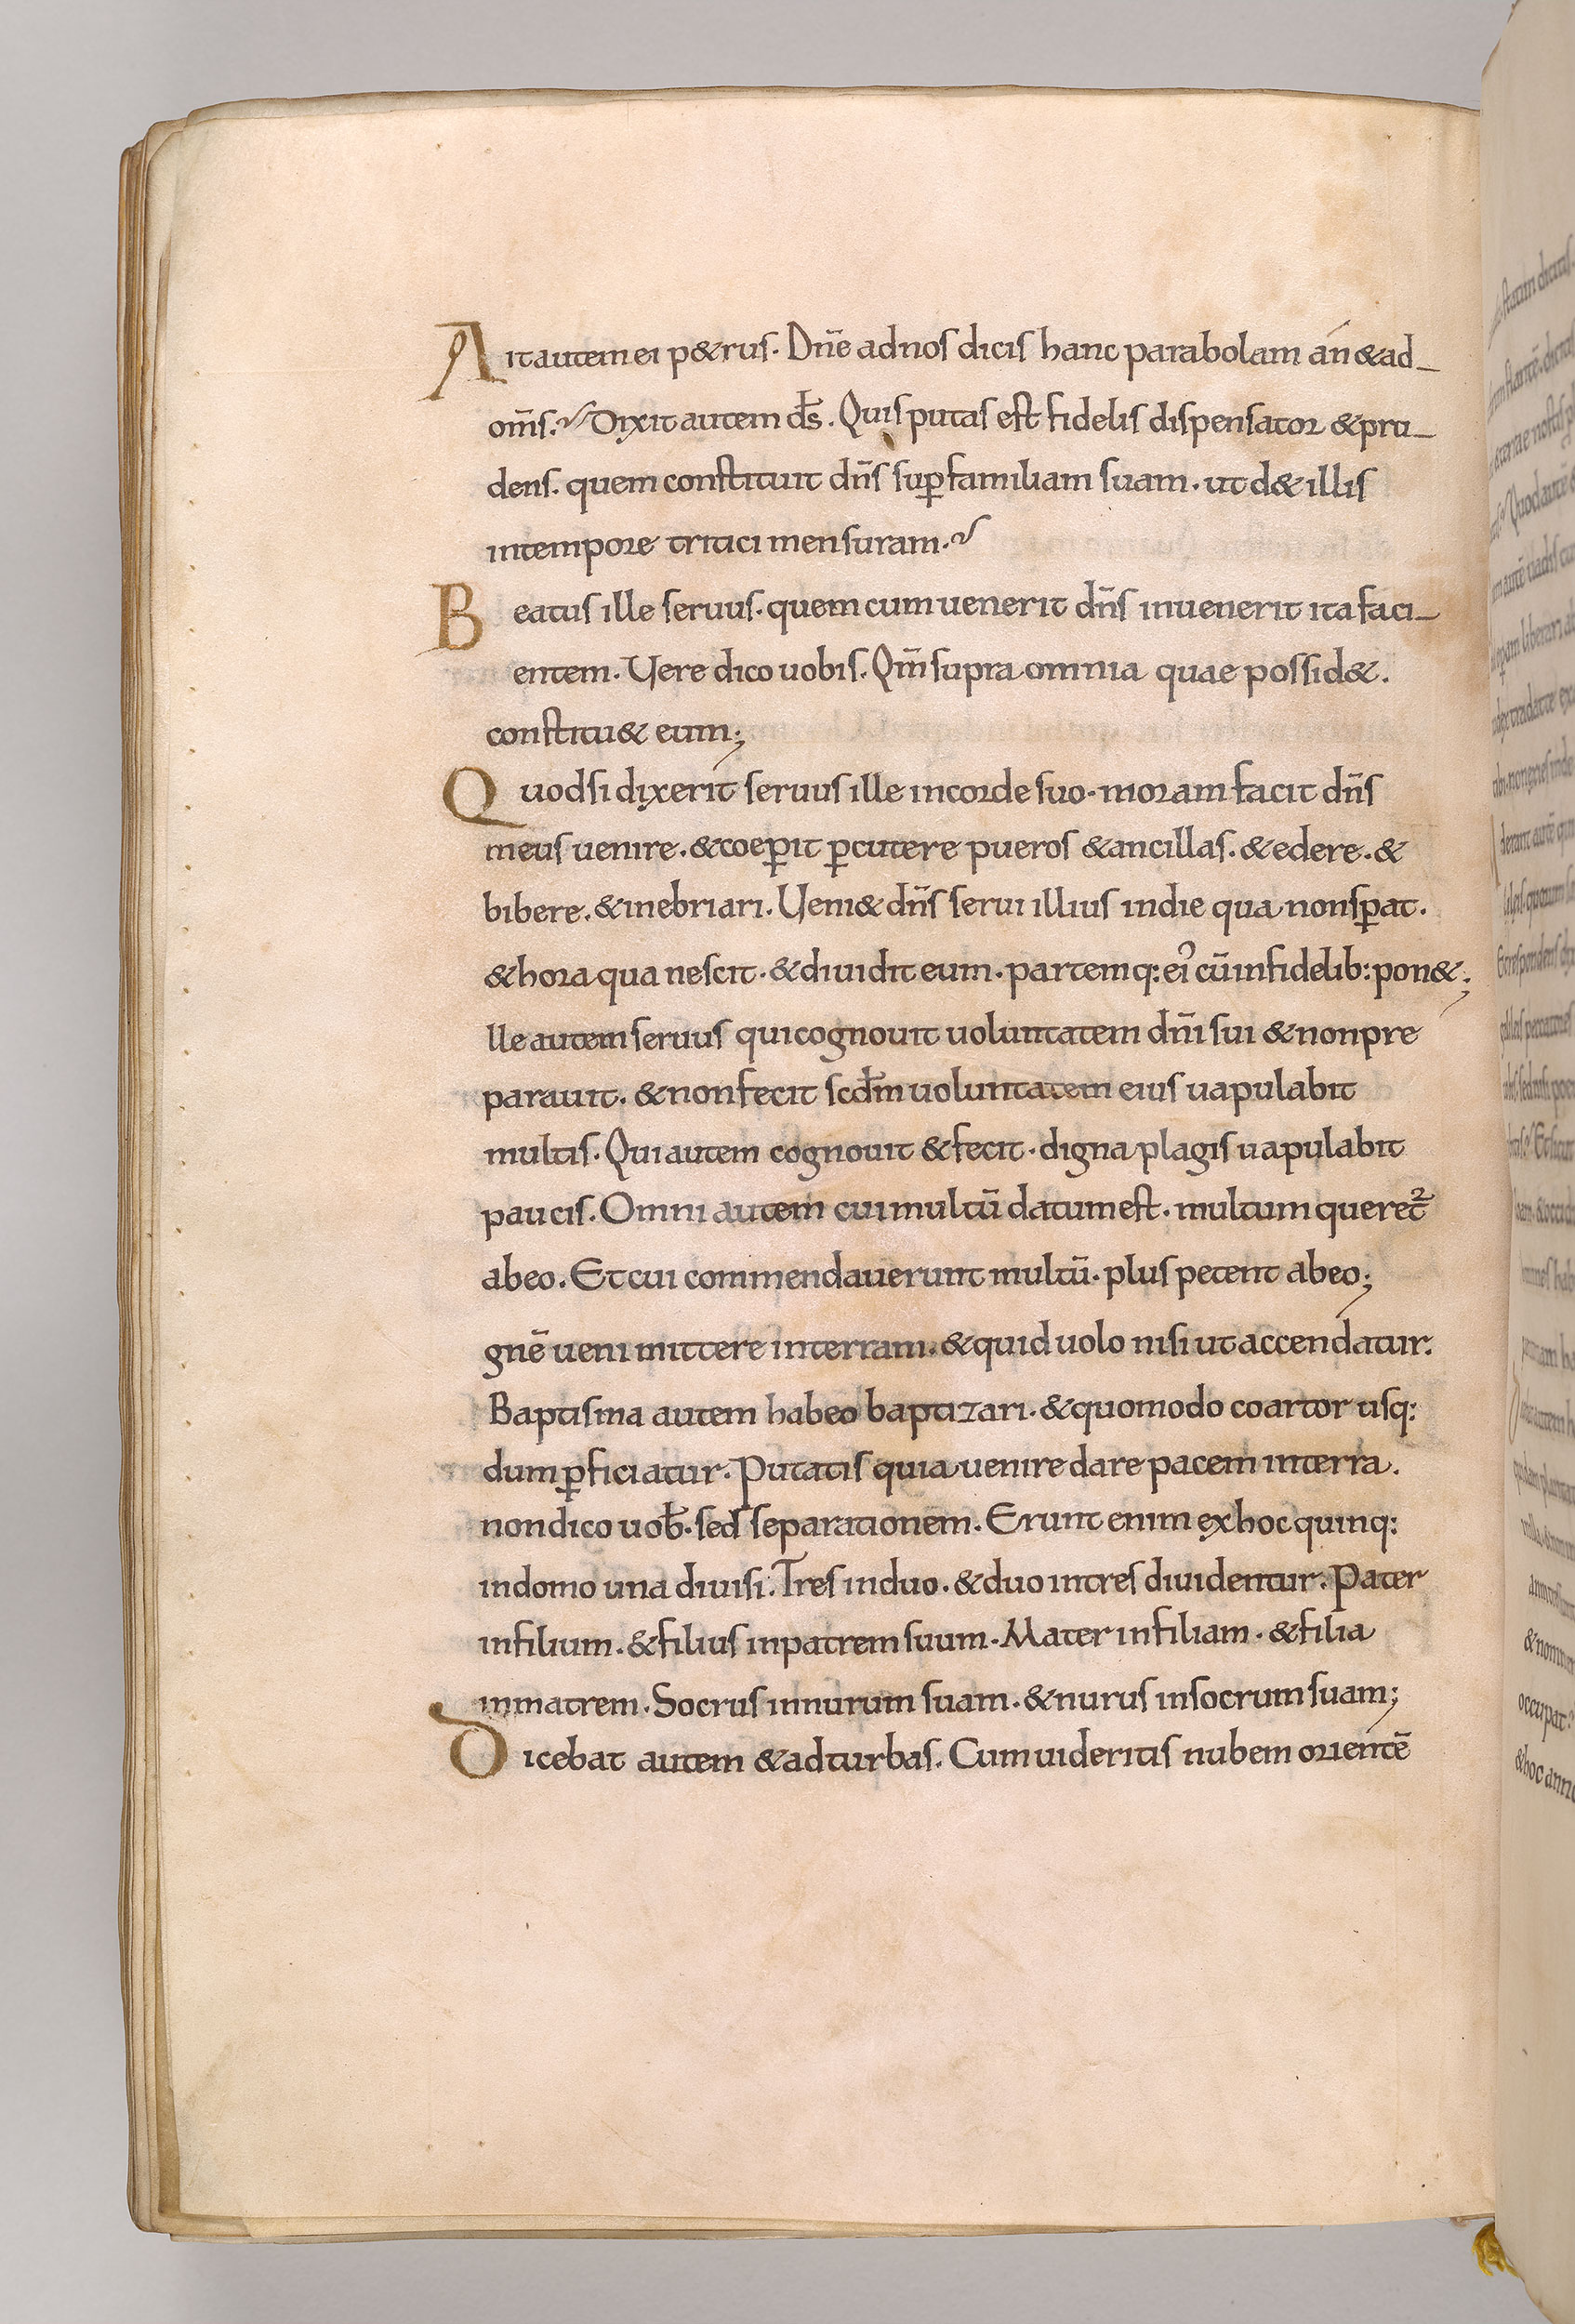 Aitautem ei p&rus. Dn̄e adnos dicis hanc parabolam án &ad-
om̄s. Dixit autem d̄s. Quis putas est fidelis dispensator &pru-
dens. quem constituit dn̄s sup̱ familiam suam. ut d& illis
intempore tritici mensuram.
Beatus ille seruus. quem cum uenerit dn̄s inuenerit ita faci-
entem. Vere dico uobis. Qm̄ supra omnia quae possid&.
constitu& eum;
Quodsi dixerit seruus ille incorde suo. moram facit dn̄s
meus uenire. &coep̱it p̱cutere pueros &ancillas. &edere. &
bibere. &inebriari. Veni& dn̄s serui illius indie qua nonsp̱at.
&hora qua nescit. &diuidit eum. partemq: ei' cū infidelib: pon&;
lle autem seruus qui cognouit uoluntatem dn̄i sui &nonpre
parauit. &nonfecit scd̄m uoluntatem eius uapulabit
multis. Qui autem cognouit &fecit. digna plagis uapulabit
paucis. Omni autem cui multū datum est. multum queret²
abeo. Et cui commendauerunt multū. plus petent abeo;
gnē ueni mittere interram. &quid uolo nisi ut accendatur.
Baptisma autem habeo baptizari. &quomodo coartor usq:
dum p̱ficiatur. Putatis quia uenire dare pacem interra.
nondico uob̄. sed separationem. Erunt enim ex hoc quinq:
indomo una diuisi. Tres induo. &duo intres diuidentur. Pater
infilium. &filius inpatrem suum. Mater infiliam. &filia
inmatrem. Socrus innurum suam. &nurus insocrum suam;
Dicebat autem &adturbas. Cum uideritis nubem orientē